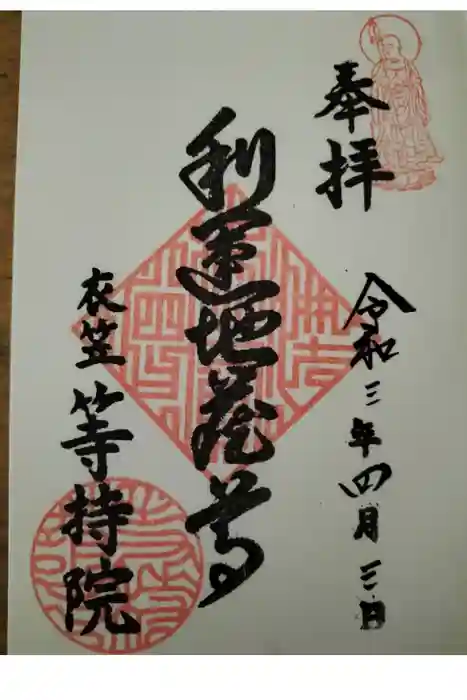 奉拝
令和三年四月三日
利運地蔵尊
衣笠 等持院